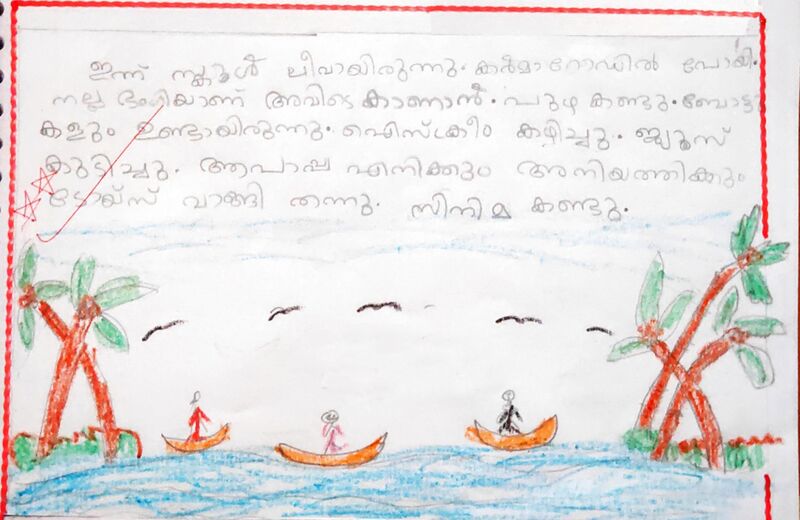 ഇന്ന് സ്കൂൾ ലീവായിരുന്നു. കർമാ റോഡിൽ പോയി.
നല്ല ഭംഗിയാണ് അവിടെ കാണാൻ. പുഴ കണ്ടു. ബോട്ടു
കളും ഉണ്ടായിരുന്നു. ഐസ്ക്രീം കഴിച്ചു. ജ്യൂസ്
കുടിച്ചു. ആപാപ്പ എനിക്കും അനിയത്തിക്കും
ടോയ്സ് വാങ്ങി തന്നു. സിനിമ കണ്ടു.